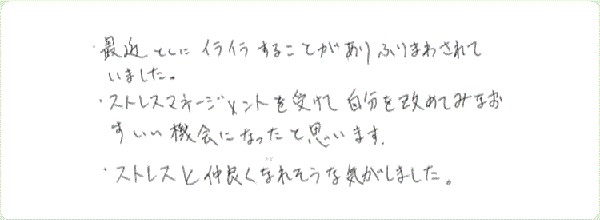 ・最近とくにイライラすることがありふりまわされて
いました。
・ストレスマネージメントを受けて自分を改めてみなお
すいい機会になったと思います。
・ストレスと仲良くなれそうな気がしました。